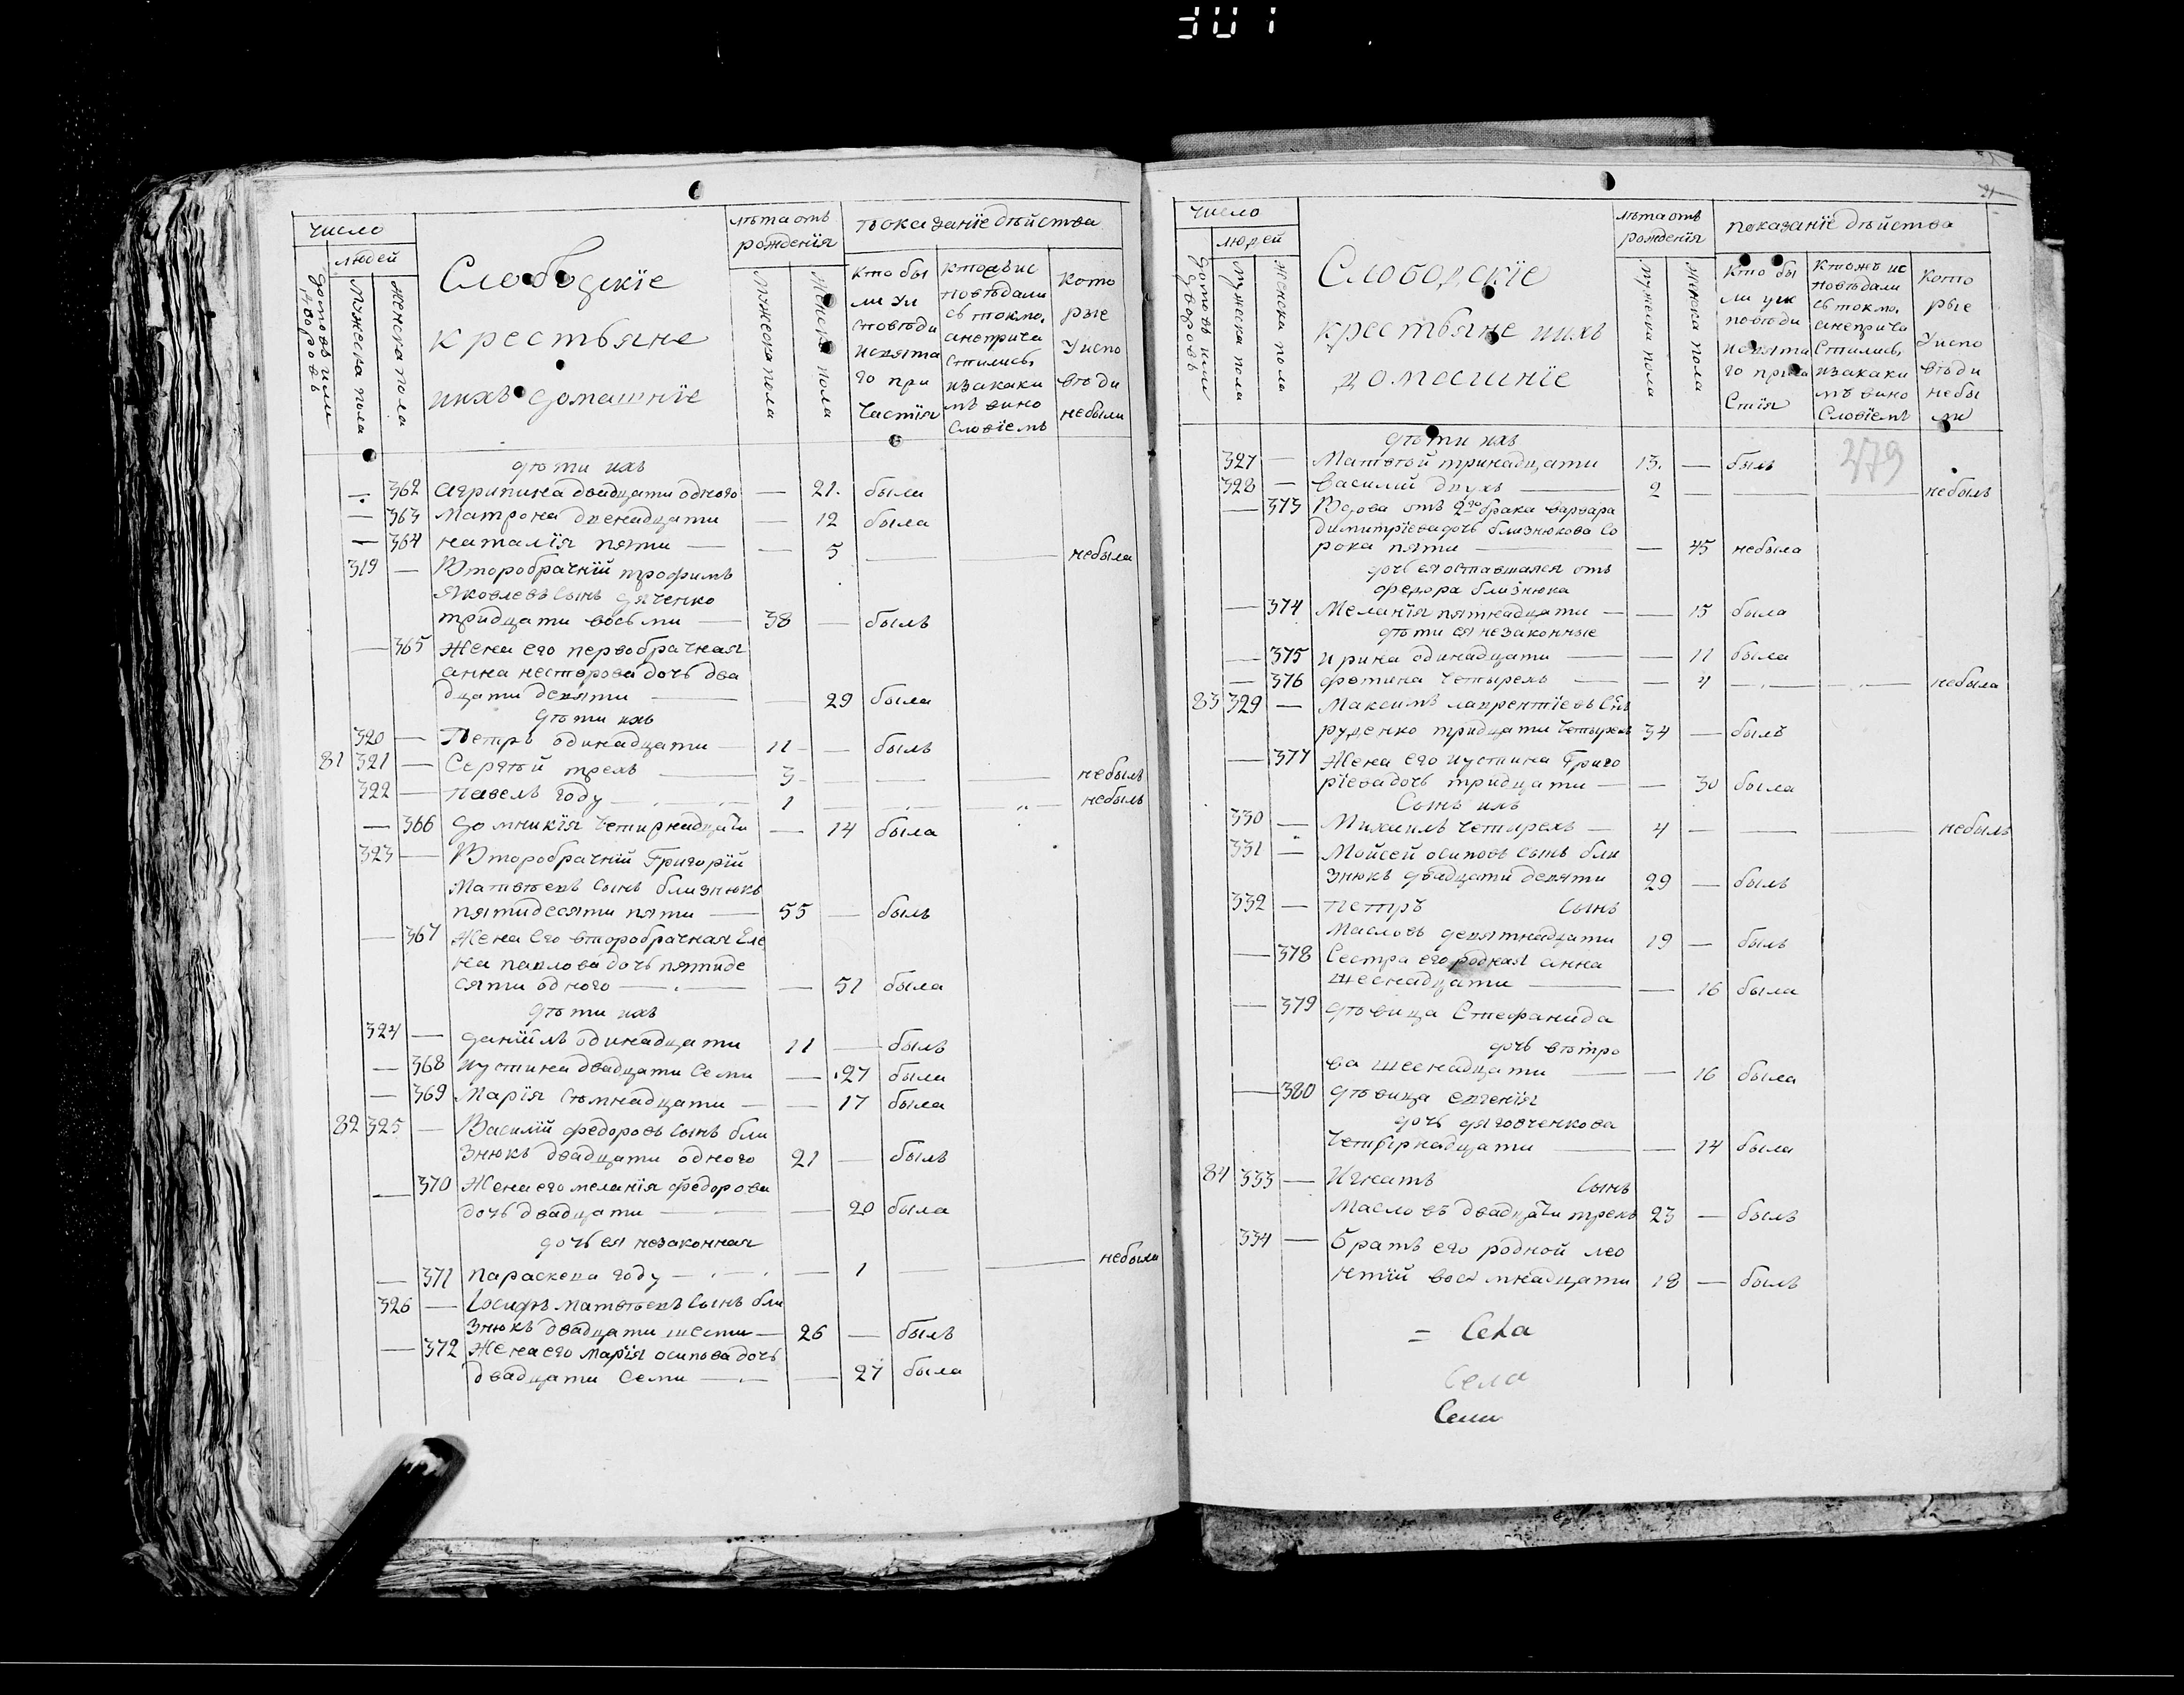 301
число
людей
домовъ или дворовъ
мужеска пола
женска пола
Слободскіе
крестьяне
ихъ домашніе
лѣта отъ
рожденія
мужеска пола
женска пола
показаніе дѣйства
кто бы
ли у и
сповѣди
и святa
го при
частія
кто исповѣдали
сь токмо,
а неприча
стились,
и за каки
мъ вино
словіемъ
кото
рые
у испо
вѣди
небыли
дѣти ихъ
— 362 агрипина двадцати одного — 21. была
— 363 Матрона двенадцати — 12 была
— 364 наталія пяти — — 5 — — небыла
319 — Второбрачній трофимъ
Яковлевъ сынъ дяченко
тридцати восьми — 38 — былъ
— 365 Жена его первобрачная
анна несторова дочь два
дцати девяти — — 29 была
дѣти ихъ
320 — Петръ одинадцати — 11 — былъ
81 321 — Сергѣй трехъ — 3 — — небылъ
322 — Павелъ году — 1 — — небылъ
— 366 домникія четирнадцати — 14 была
323 — Второбрачній Григорій
Матвѣевъ сынъ близнюкъ
пятидесяти пяти — 55 — былъ
— 367 Жена его второбрачная Еле
на павлова дочь пятиде
сяти одного — — 51 была
дѣти ихъ
324 — даніилъ одинадцати 11 — былъ
— 368 иустина двадцати семи — 27 была
— 369 Марія семнадцати — — 17 была
82 325 — Василій федоровъ сынъ бли
знюкъ двадцати одного 21 — былъ
— 370 Жена его меланія федорова
дочь двадцати — — 20 была
дочь ея незаконная
— 371 параскева году — — 1 — — небыла
326 — Iосифъ матвѣевъ сынъ бли
знюкъ двадцати шести — 26 — былъ
— 372 Жена его марія осипова дочь
двадцати семи — — 27 была
число
людей
домовъ или дворовъ
мужеска пола
женска пола
Слободскіе
крестьяне ихъ
домашніе
лѣта отъ
рожденія
мужеска пола
женска пола
показаніе дѣйства
кто бы
ли у ис
повѣди
и свята
го прича
стія
кто жъ ис
повѣдали
сь токмо,
а неприча
стились,
и за каки
мъ вино
словіемъ
кото
рые
у испо
вѣди
небы
ли
279
дѣти ихъ
327 — Матвѣй тринадцати 13. — былъ
328 — Василій двухъ — 2 — — — небылъ
— 373 Вдова отъ 2го брака варвара
димитріева дочь близнюкова со
рока пяти — — 45 небыла
дочь ея оставшаяся отъ
федора близнюка
— 374 Меланія пятнадцати — — 15 была
дѣти ея незаконные
— 375 ирина одинадцати — — 11 была
— 376 фотина четырехъ — — 4 — — небыла
83 329 — Максимъ лаврентіевъ снъ
руденко тридцати четырехъ 34 — былъ
— 377 Жена его иустина Григо
ріева дочь тридцати — — 30 была
Сынъ ихъ
330 — Михаилъ четырехъ — 4 — — — небылъ
331 — Мойсей осиповъ сынъ бли
знюкъ двадцати девяти 29 — былъ
332 — Петръ сынъ
Масловъ девятнадцати 19 — былъ
— 378 Сестра его родная анна
шеснадцати — — 16 была
— 379 дѣвица Стефанида
дочь вѣтро
ва шеснадцати — — 16 была
— 380 дѣвица евгенія
дочь дяговченкова
четирнадцати — — 14 была
84 333 — Игнатъ сынъ
Масловъ двадцати трехъ 23 — былъ
334 — братъ его родной лео
нтій восемнадцати 18 — былъ
= Села
Села
Сели